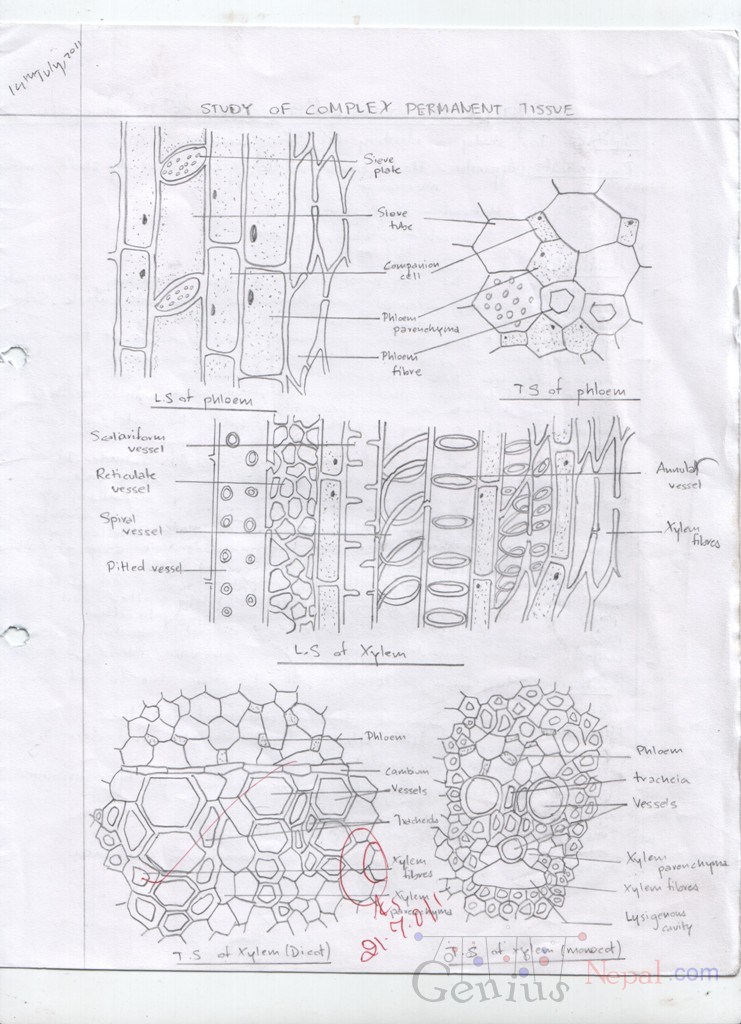 14th July, 2011
STUDY OF COMPLEX PERMANENT TISSUE
Sieve
plate
Sieve
tube
Companion
cell
Phloem
parenchyma
Phloem
fibre
L.S of phloem
T.S of phloem
Scalariform
vessel
Reticulate
vessel
Spiral
vessel
Pitted vessel
Annular
vessel
Xylem
fibres
L.S of Xylem
Phloem
Cambum
Vessels
Tracheids
Xylem
fibres
Xylem
parenchyma
T.S of Xylem (Dicot)
Phloem
tracheia
Vessels
Xylem
parenchyma
Xylem fibres
Lysigenous
cavity
T.S of xylem (monocot)
Genius Nepal.com